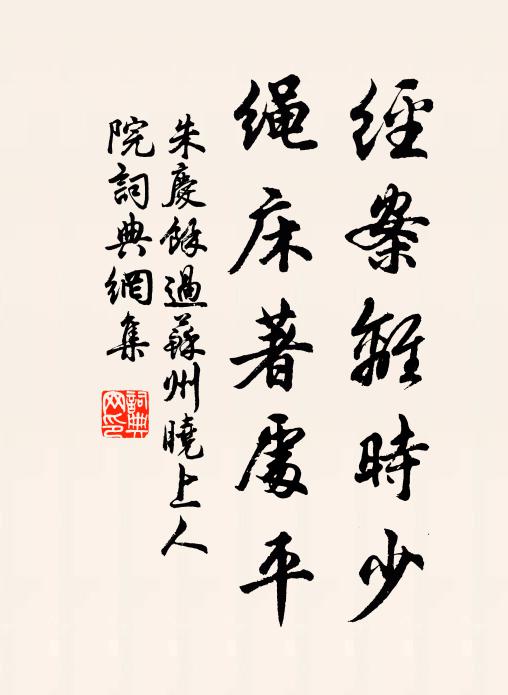 經案離時少
繩床著處平
朱慶餘過蘇州曉上人
院詞典網集
詞典網印